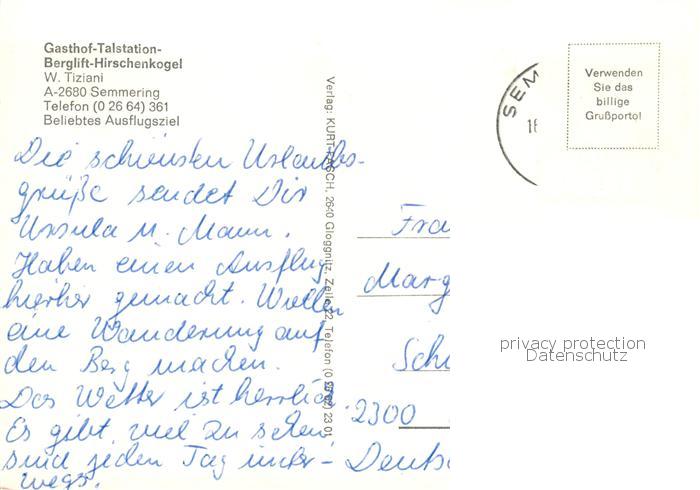 Gasthof-Talstation-
Berglift-Hirschenkogel
W. Tiziani
A-2680 Semmering
Telefon (0 26 64) 361
Beliebtes Ausflugsziel
Die schönsten Urlaubs-
grüße sendet Dir
Ursula u. Mann.
Haben einen Ausflug
hierher gemacht. Wollen
eine Wanderung auf
den Berg machen.
Das Wetter ist herrlich.
Es gibt viel zu sehen,
sind jeden Tag unter-
wegs.
Verlag: KURT RASCH, 2640 Gloggnitz, Zeile 22, Telefon (0 26 62) 23 01
SEM
Verwenden
Sie das
billige
Grußporto!
Fra
Marg
Sch
2300
Deuts
privacy protection
Datenschutz